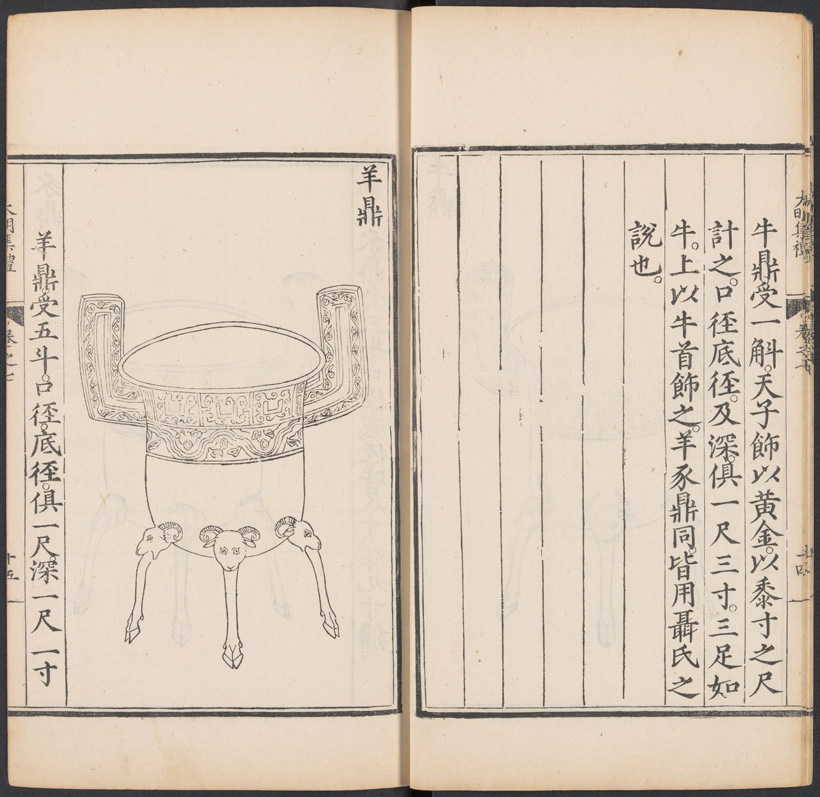 牛鼎受一斛。天子飾以黄金。以黍寸之尺
計之。口徑底徑。及深。俱一尺三寸。三足如
牛。上以牛首飾之。羊豕鼎同。皆用聶氏之
說也。
大明集禮
卷之七
十四
羊鼎
羊鼎受五斗。口徑。底徑。俱一尺。深一尺一寸
大明集禮
卷之七
十五